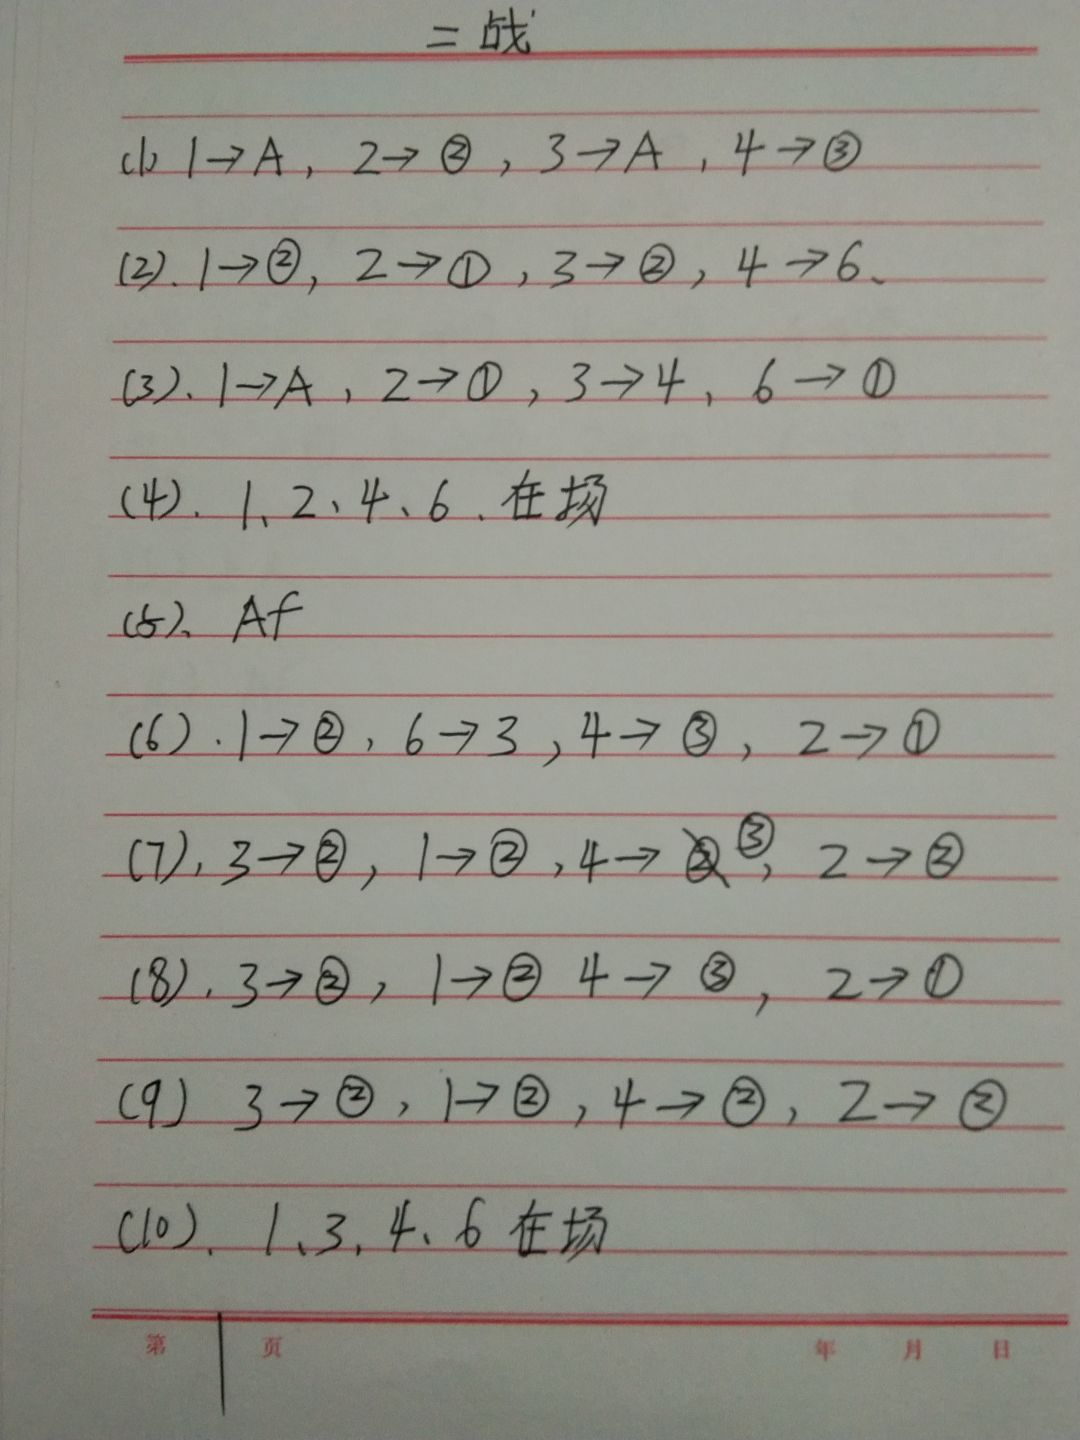 二战
(1) 1→A, 2→②, 3→A, 4→③
(2). 1→②, 2→①, 3→②, 4→6、
(3). 1→A, 2→①, 3→4, 6→①
(4). 1、2、4、6、在场
(5)、Af
(6). 1→②, 6→3, 4→③, 2→①
(7). 3→②, 1→②, 4→③, 2→②
(8). 3→②, 1→② 4→③, 2→①
(9) 3→②, 1→②, 4→②, 2→②
(10). 1、3、4、6 在场
第 页 年 月 日